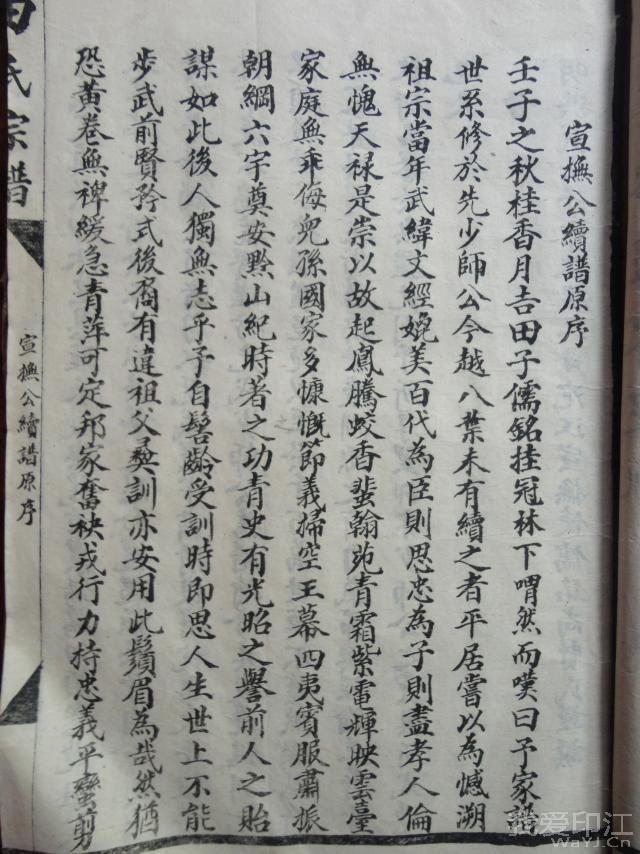 宣撫公續譜原序
壬子之秋桂香月吉田子儒銘挂冠林下喟然而嘆曰予家譜
世系修於先少師公今越八葉未有續之者平居嘗以為憾溯
祖宗當年武緯文經媲美百代為臣則思忠為子則盡孝人倫
無愧天禄是崇以故起鳳騰蛟香蜚翰苑青霜紫電輝映雲臺
家庭無乖侮兒孫國家多慷慨節義掃空王幕四夷賓服肅振
朝綱六字奠安黔山紀時著之功青史有光昭之譽前人之貽
謀如此後人獨無志乎予自髫齡受訓時即思人生世上不能
步武前賢矜式後裔有違祖父彝訓亦安用此鬚眉為哉然猶
恐黃卷無裨緩急青萍可定邦家奮袂戎行力持忠義平蠻剪
氏宗譜
宣撫公續譜原序
我爱印江
WaYJ.Cn